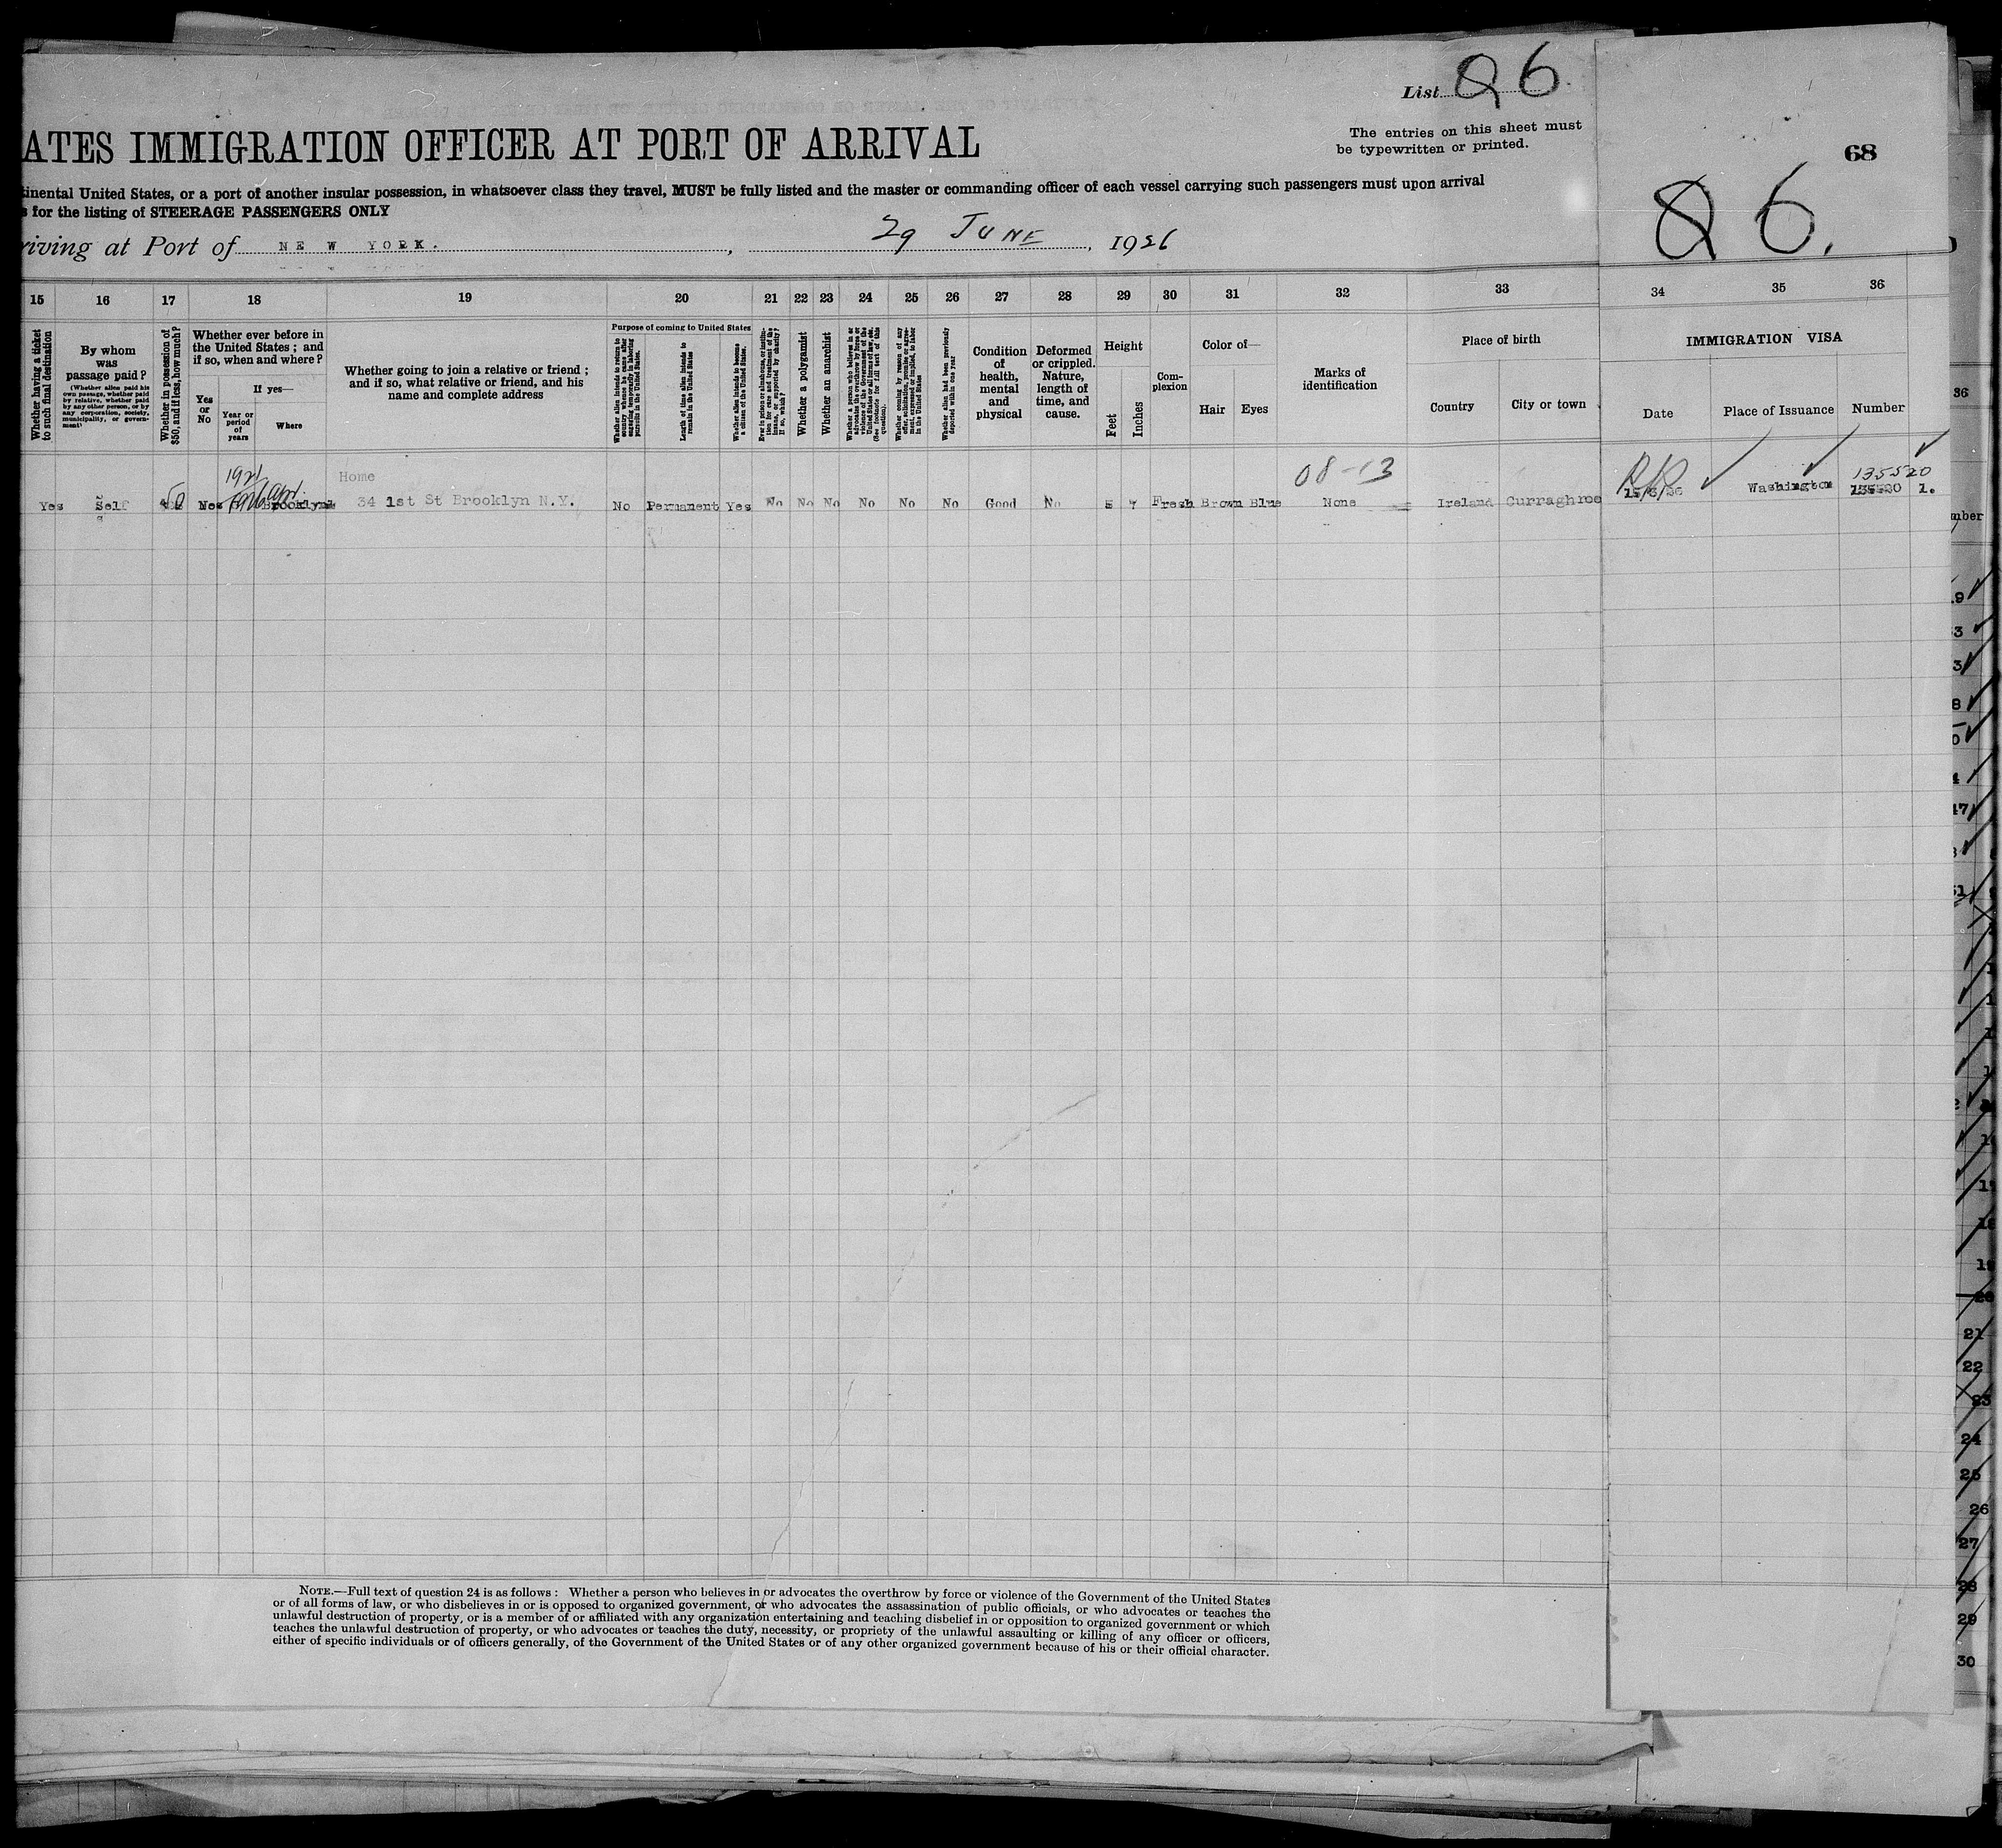 List 86
ATES IMMIGRATION OFFICER AT PORT OF ARRIVAL
The entries on this sheet must
be typewritten or printed.
68
86.
tinental United States, or a port of another insular possession, in whatsoever class they travel, MUST be fully listed and the master or commanding officer of each vessel carrying such passengers must upon arrival
s for the listing of STEERAGE PASSENGERS ONLY
riving at Port of NEW YORK. , 29 JUNE , 1926
15 16 17 18 19 20 21 22 23 24 25 26 27 28 29 30 31 32 33 34 35 36
Whether having a ticket
to such final destination
By whom
was
passage paid?
(Whether alien paid his
own passage, whether paid
by relative, whether paid
by any other person, or by
any corporation, society,
municipality, or govern-
ment)
Whether in possession of
$50, and if less, how much?
Whether ever before in
the United States; and
if so, when and where?
Yes
or
No
If yes—
Year or
period
of
years
Where
Whether going to join a relative or friend;
and if so, what relative or friend, and his
name and complete address
Purpose of coming to United States
Whether alien intends to return to
country whence he came after
engaging temporarily in laboring
pursuits in the United States.
Length of time alien intends to
remain in the United States
Whether alien intends to become
a citizen of the United States.
Ever in prison or almshouse, or institu-
tion for care and treatment of the
insane, or supported by charity?
If so, which?
Whether a polygamist
Whether an anarchist
Whether a person who believes in or
advocates the overthrow by force or
violence of the Government of the
United States or all forms of law, etc.
(See footnote for full text of this
question).
Whether coming by reason of any
offer, solicitation, promise or agree-
ment, expressed or implied, to labor
in the United States
Whether alien had been previously
deported within one year
Condition
of
health,
mental
and
physical
Deformed
or crippled.
Nature,
length of
time, and
cause.
Height
Feet
Inches
Com-
plexion
Color of—
Hair Eyes
Marks of
identification
Place of birth
Country City or town
IMMIGRATION VISA
Date Place of Issuance Number
1921 Home 08-13 135520
Yes Self 50 Brooklyn 34 1st St Brooklyn N.Y. No Permanent Yes No No No No No No Good No 5 7 Fresh Brown Blue None Ireland Curraghroe 15/6/26 Washington 1.
36
mber
9
3
3
8
0
4
17
21
22
23
24
25
26
27
28
29
30
NOTE.—Full text of question 24 is as follows: Whether a person who believes in or advocates the overthrow by force or violence of the Government of the United States
or of all forms of law, or who disbelieves in or is opposed to organized government, or who advocates the assassination of public officials, or who advocates or teaches the
unlawful destruction of property, or is a member of or affiliated with any organization entertaining and teaching disbelief in or opposition to organized government or which
teaches the unlawful destruction of property, or who advocates or teaches the duty, necessity, or propriety of the unlawful assaulting or killing of any officer or officers,
either of specific individuals or of officers generally, of the Government of the United States or of any other organized government because of his or their official character.